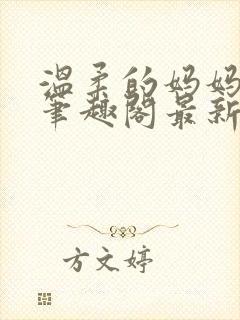 温柔的妈妈
笔趣阁最新
方文婷